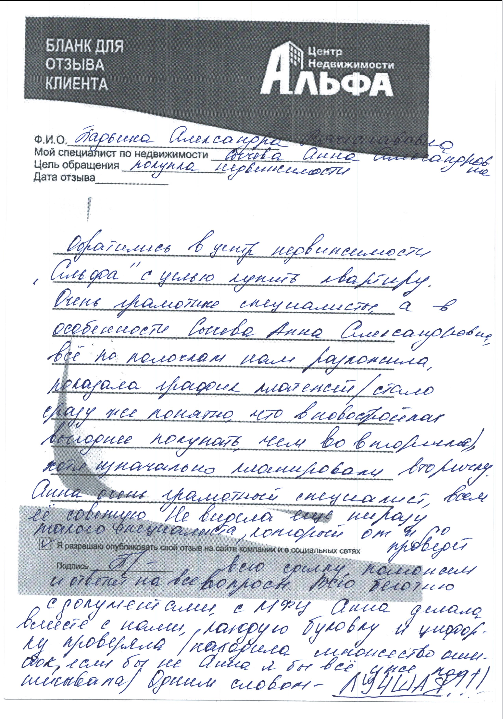 БЛАНК ДЛЯ
ОТЗЫВА
КЛИЕНТА
Центр
Недвижимости
АЛЬФА
Ф.И.О. Александра
Мой специалист по недвижимости Анна Александров
на
Цель обращения покупка недвижимости
Дата отзыва
Обратились в центр недвижимости
"Альфа" с целью купить квартиру.
Очень грамотные специалисты, а в
особенности Анна Александровна,
всё по полочкам нам разложила,
показала график платежей/стало
сразу же понятно, что в новостройках
выгоднее покупать, чем во вторичке/,
хотя изначально планировали вторичку.
Анна очень грамотный специалист, всем
её советую. Не видела ещё ни разу
такого специалиста, который от и до
проведёт
✓ Я разрешаю опубликовать свой отзыв на сайте компании и в социальных сетях
Подпись всю сделку, поможет
и ответит на все вопросы. Всю беготню
с документами, с МФЦ Анна делала
вместе с нами, каждую буковку и циферку
проверяла/находила множество оши-
бок, если бы не Анна я бы всё уже
Одним словом - ЛУЧШАЯ!!!